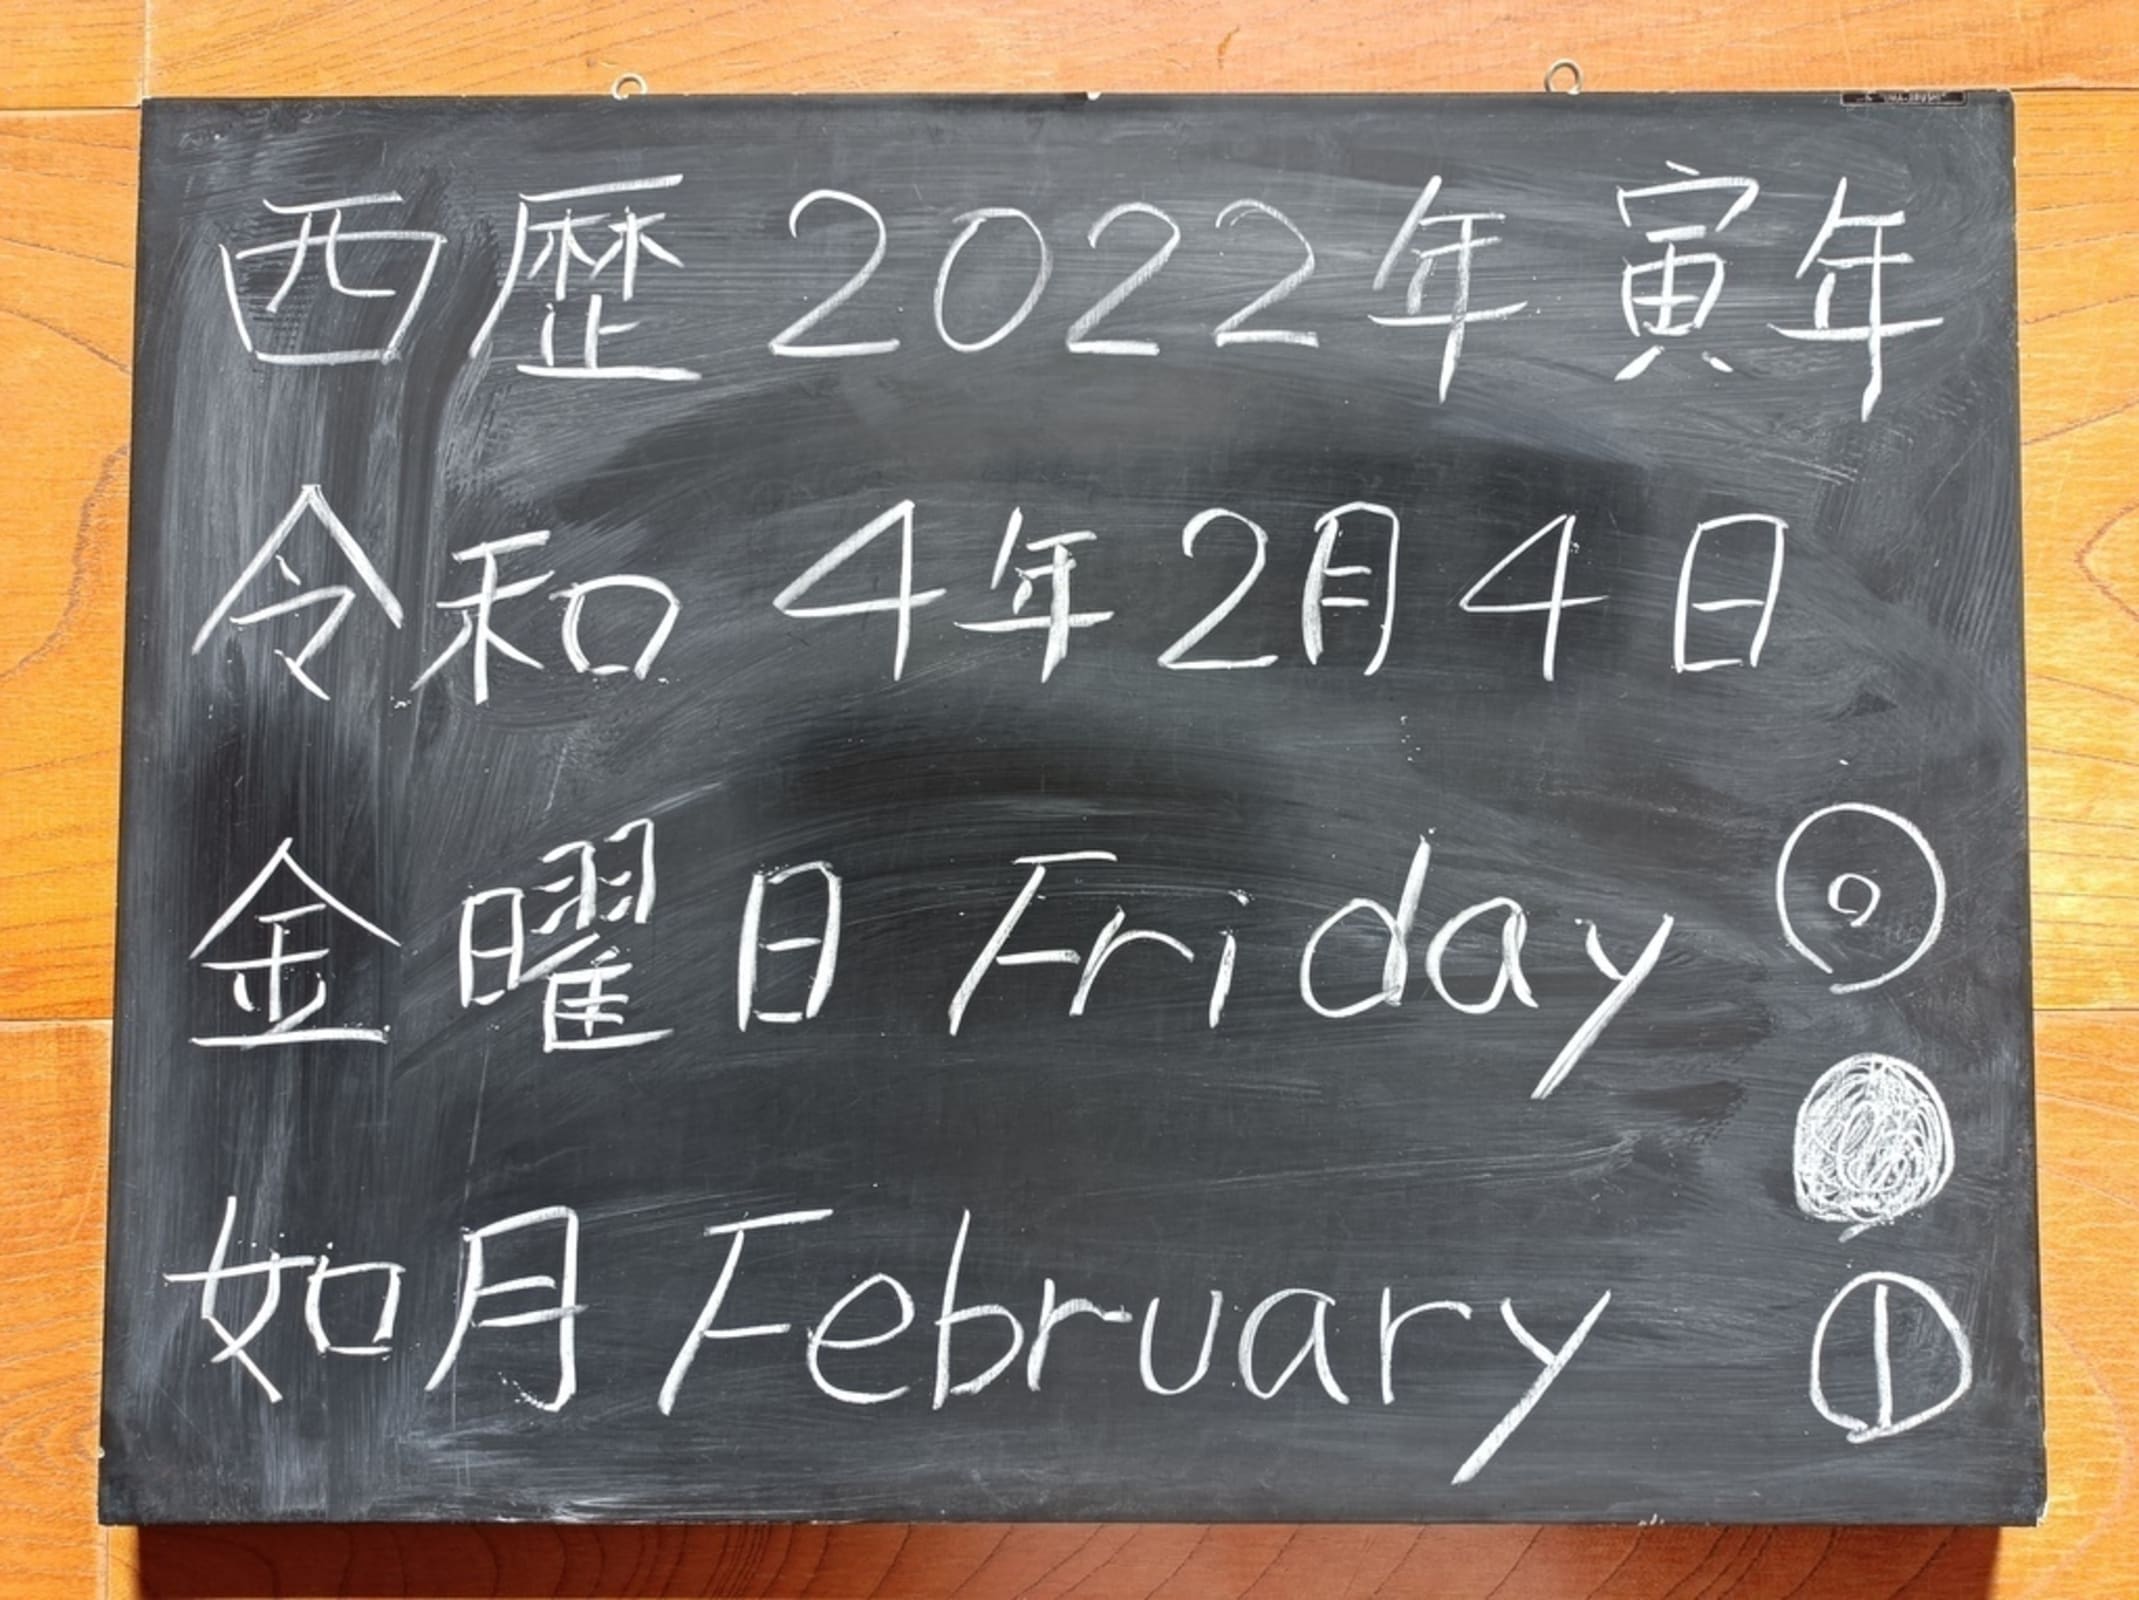 西歴2022年寅年
令和4年2月4日
金曜日Friday ◎
●
如月February ⦶